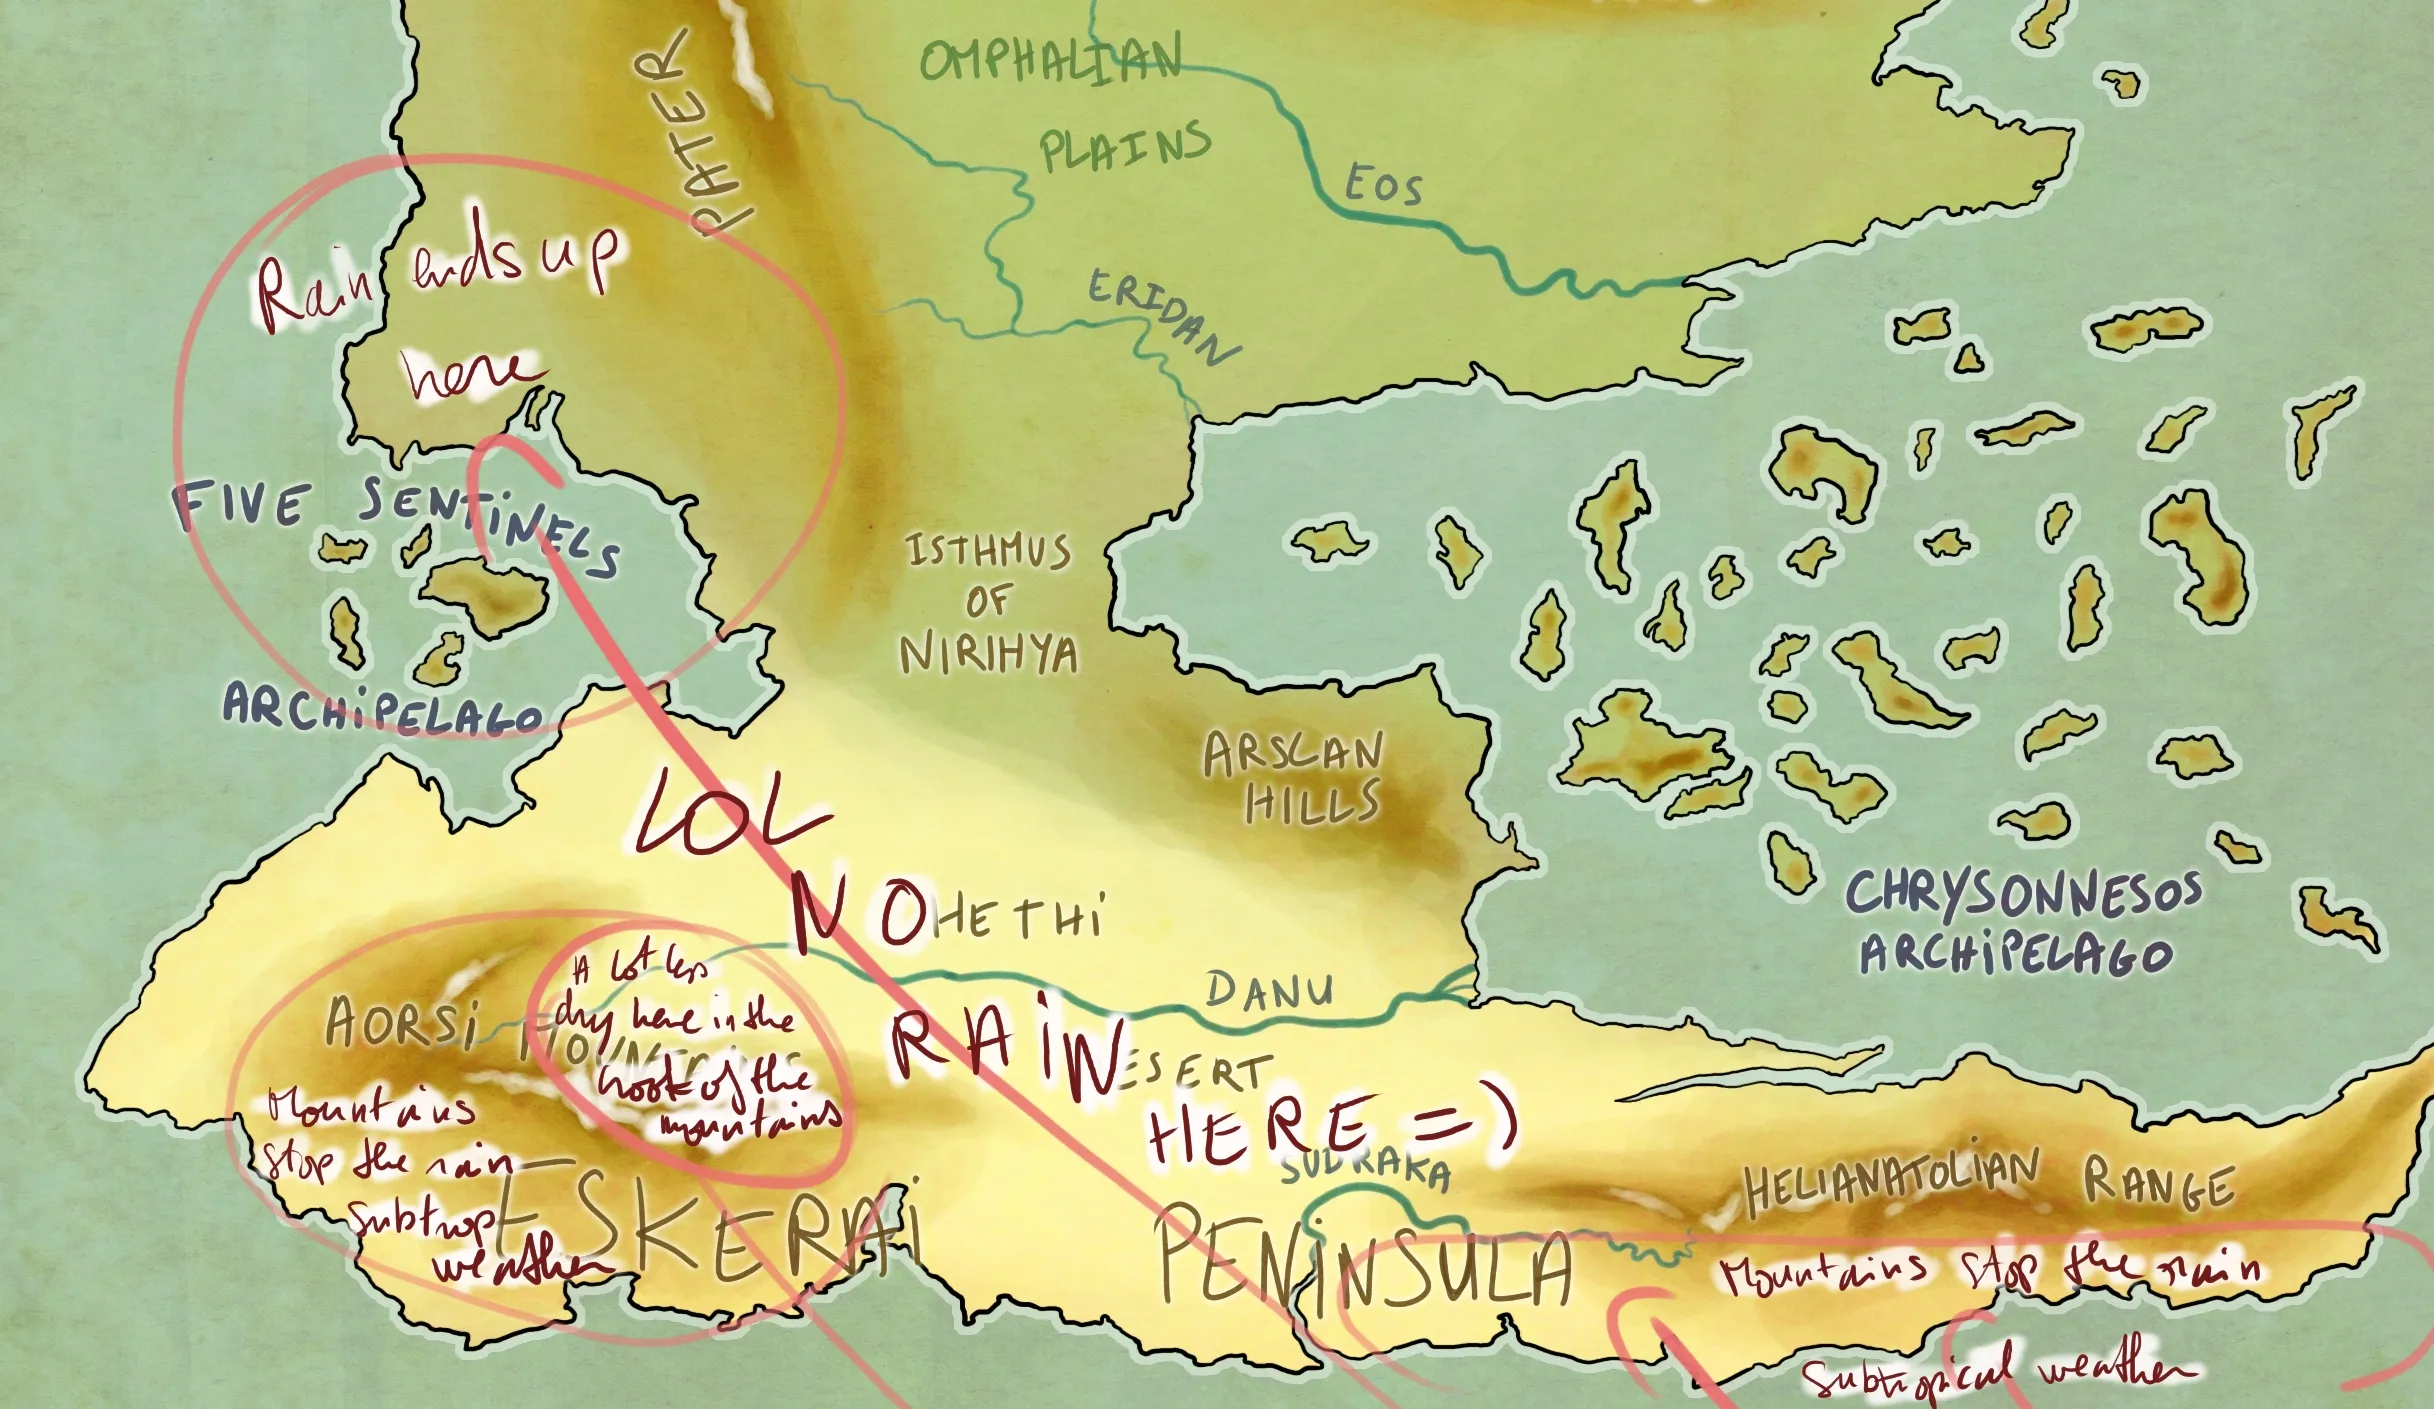 OMPHALIAN
PLAINS
PATER
EOS
ERIDAN
Rain ends up
here
FIVE SENTINELS
ARCHIPELAGO
ISTHMUS
OF
NIRIHYA
ARSCAN
HILLS
CHRYSONNESOS
ARCHIPELAGO
LOL
NO
HETHI
RAIN
ESERT
HERE =)
DANU
AORSI
A lot less
dry here in the
nook of the
mountains
Mountains
stop the rain
Subtrop
weather
ESKERAI
SUDRAKA
PENINSULA
HELIANATOLIAN RANGE
Mountains stop the rain
Subtropical weather